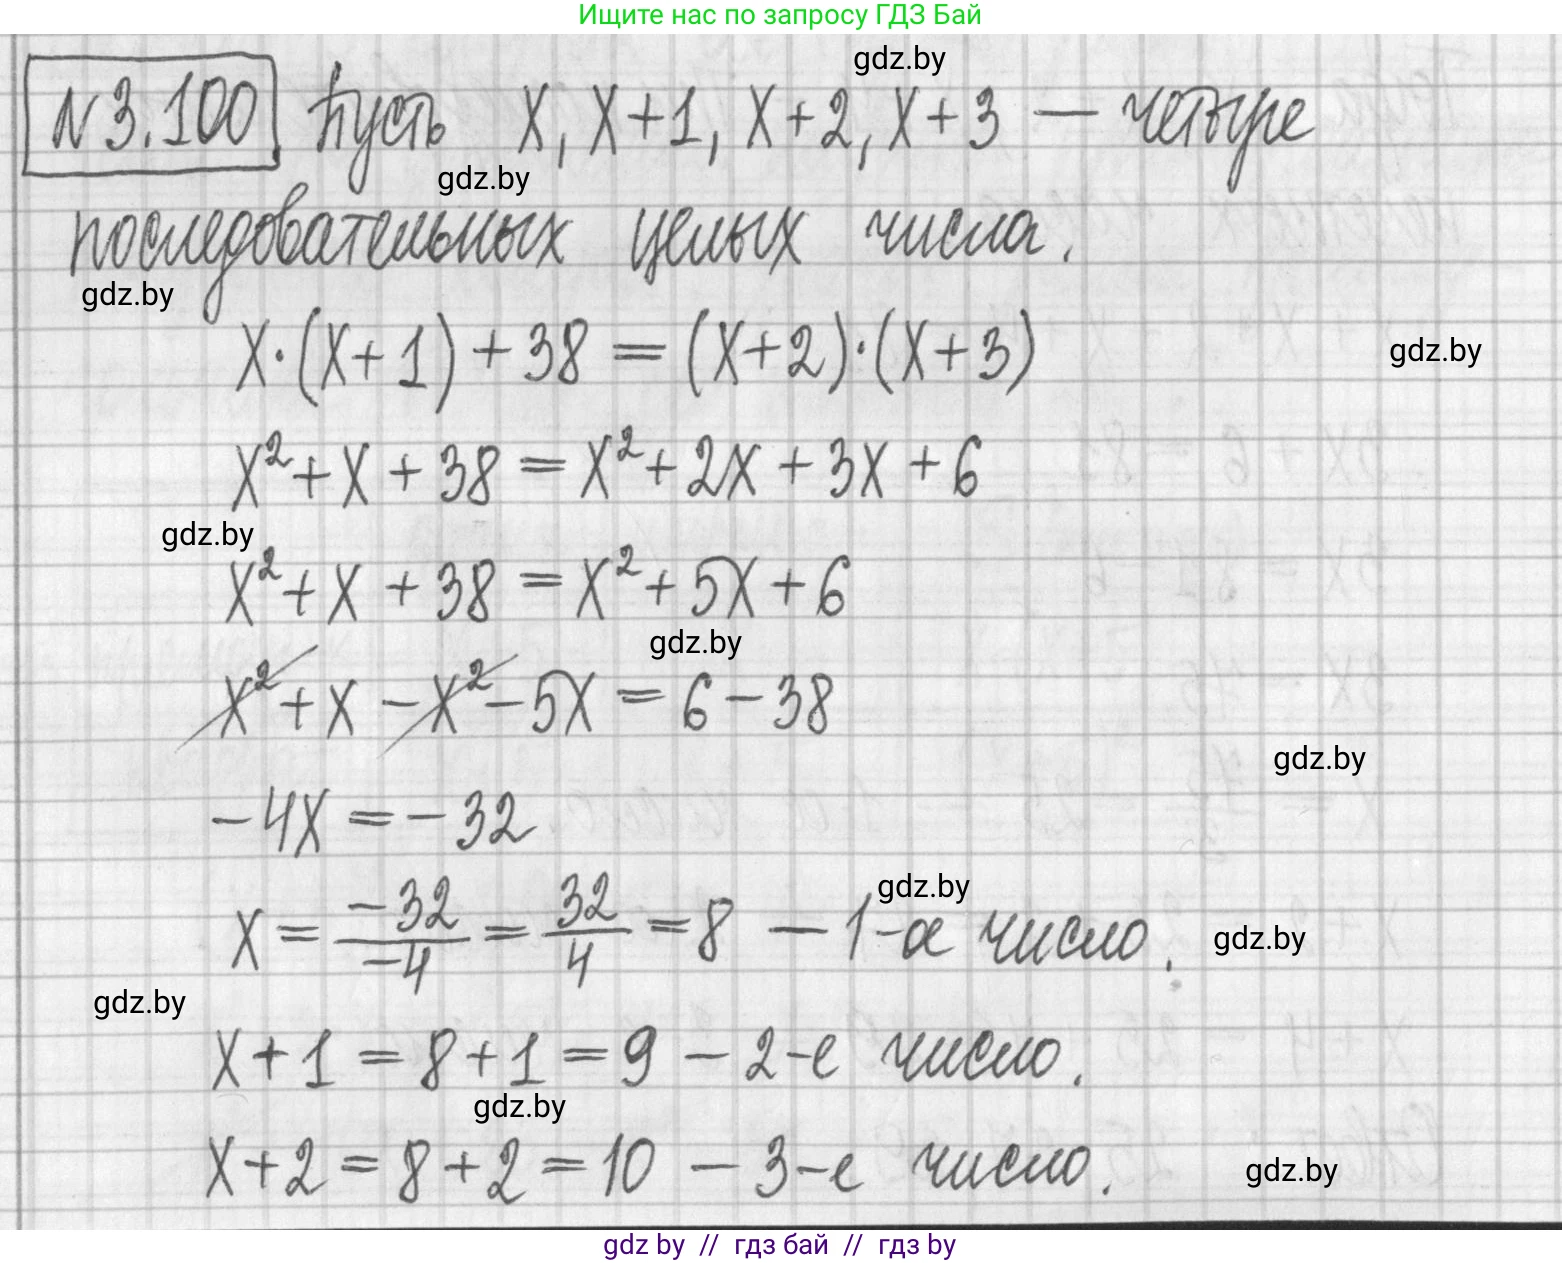 Ищите нас по запросу ГДЗ Бай
gdz.by
N 3.100 Пусть x, x+1, x+2, x+3 — четыре
gdz.by
последовательных целых числа.
gdz.by
x·(x+1)+38=(x+2)·(x+3)
gdz.by
x²+x+38=x²+2x+3x+6
gdz.by
x²+x+38=x²+5x+6
gdz.by
x²+x-x²-5x=6-38
gdz.by
-4x=-32
gdz.by
x=-32/-4=32/4=8 — 1-ое число.
gdz.by
gdz.by
x+1=8+1=9 — 2-е число.
gdz.by
x+2=8+2=10 — 3-е число.
gdz.by
gdz by // гдз бай // гдз by